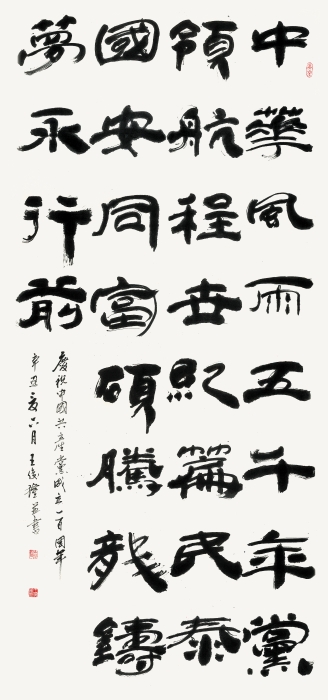 中華風雨五千年黨
領航程世紀篇民泰
國安同富碩騰龍鑄
夢永行前
慶祝中國共產黨成立一百周年
辛丑夏六月王